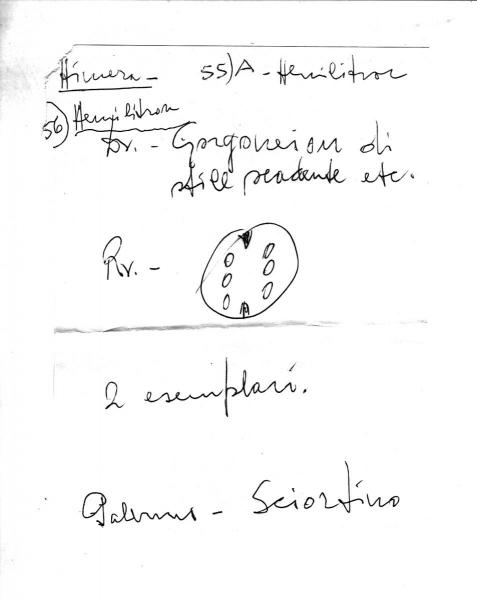 Himera - 55) A - Hemilitron
56) Hemilitron
Dr. - Gorgoneion di
stile scadente etc.
Rv. -
2 esemplari.
Palermo - Sciortino